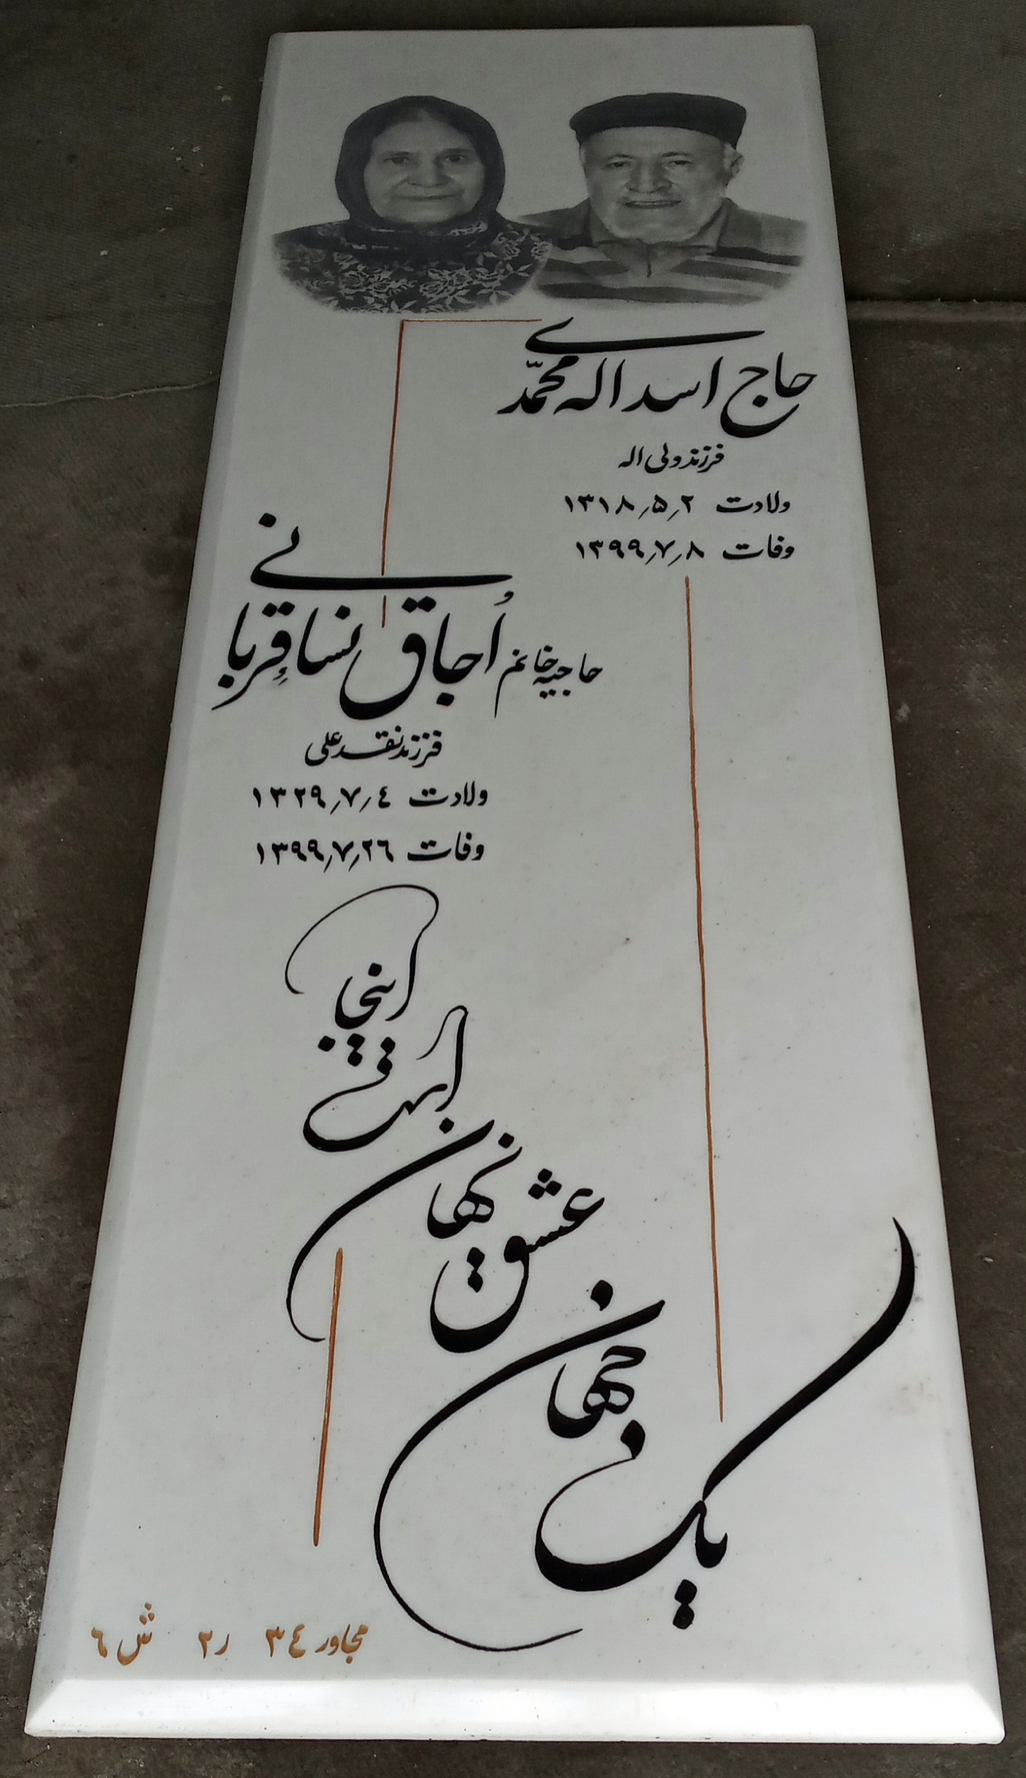 حاج اسداله محمّدی
فرزند ولی اله
ولادت ۱۳۱۸٫۵٫۲
وفات ۱۳۹۹٫۷٫۸
حاجیه خانم اُجاق نساء قِربانی
فرزند نقدعلی
ولادت ۱۳۲۹٫۷٫٤
وفات ۱۳۹۹٫۷٫۲٦
اینجا
است
عشق نهان
یک جهان
مجاور ۳٤ ر۲ ش ٦